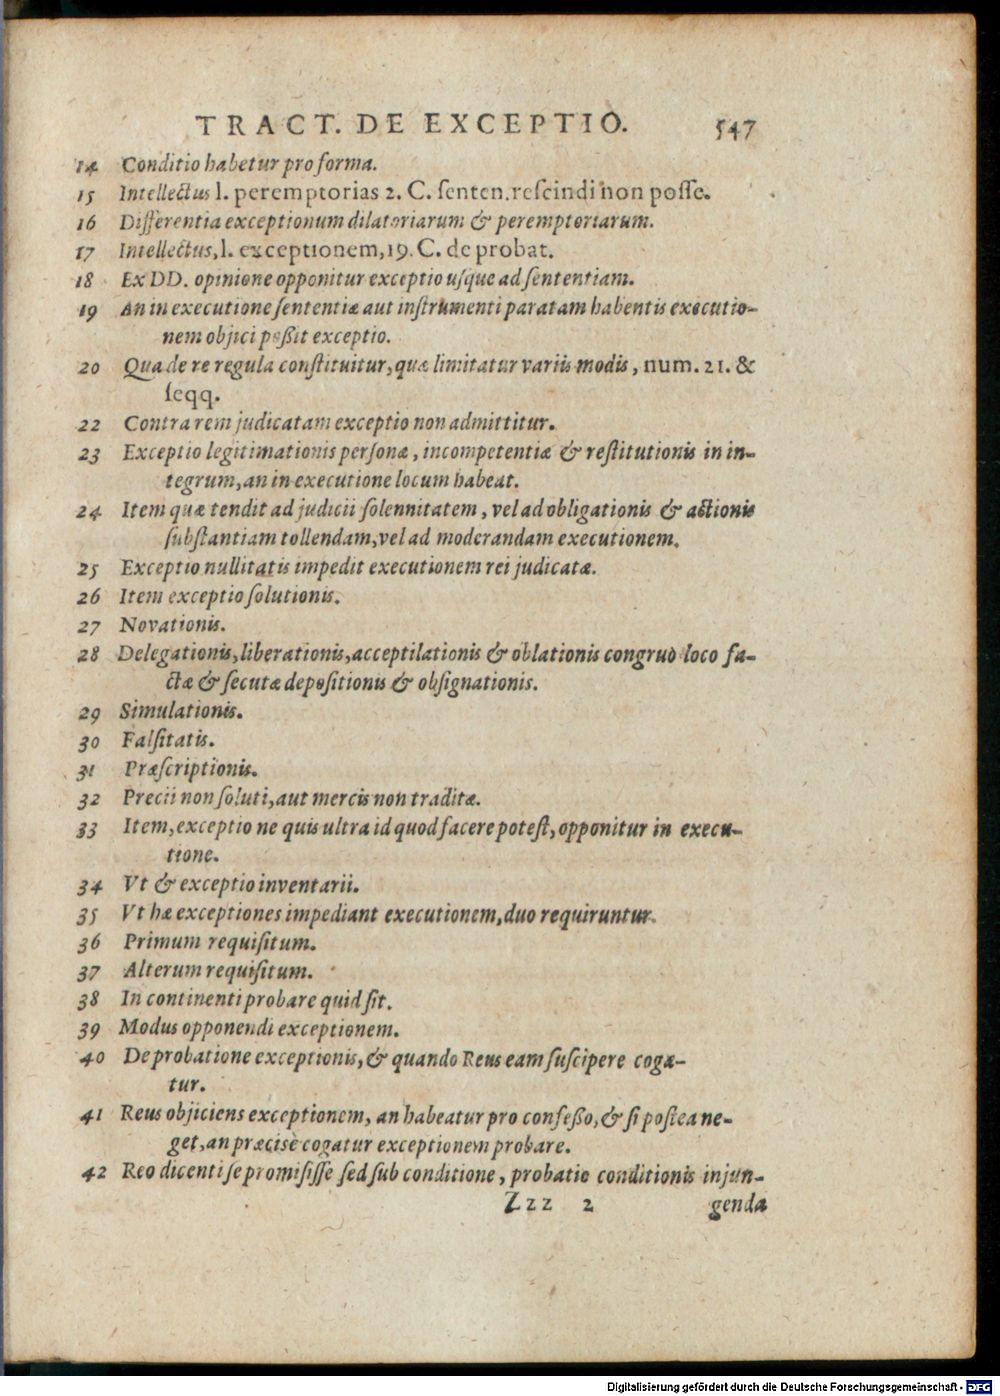 TRACT. DE EXCEPTIO. 547
14 Conditio habetur pro forma.
15 Intellectus l. peremptorias 2. C. ſenten. reſcindi non poſſe.
16 Differentia exceptionum dilatoriarum & peremptoriarum.
17 Intellectus, l. exceptionem, 19. C. de probat.
18 Ex DD. opinione opponitur exceptio uſque ad ſententiam.
19 An in executione ſententiæ aut inſtrumenti paratam habentis executio-
nem objici poßit exceptio.
20 Qua de re regula conſtituitur, quæ limitatur variis modis, num. 21. &
ſeqq.
22 Contra rem judicatam exceptio non admittitur.
23 Exceptio legitimationis perſonæ, incompetentiæ & reſtitutionis in in-
tegrum, an in executione locum habeat.
24 Item quæ tendit ad judicii ſolennitatem, vel ad obligationis & actionis
ſubſtantiam tollendam, vel ad moderandam executionem.
25 Exceptio nullitatis impedit executionem rei judicatæ.
26 Item exceptio ſolutionis.
27 Novationis.
28 Delegationis, liberationis, acceptilationis & oblationis congruo loco fa-
ctæ & ſecutæ depoſitionis & obſignationis.
29 Simulationis.
30 Falſitatis.
31 Præſcriptionis.
32 Precii non ſoluti, aut mercis non traditæ.
33 Item, exceptio ne quis ultra id quod facere poteſt, opponitur in execu-
tione.
34 Vt & exceptio inventarii.
35 Vt hæ exceptiones impediant executionem, duo requiruntur.
36 Primum requiſitum.
37 Alterum requiſitum.
38 In continenti probare quid ſit.
39 Modus opponendi exceptionem.
40 De probatione exceptionis, & quando Reus eam ſuſcipere coga-
tur.
41 Reus objiciens exceptionem, an habeatur pro confeßo, & ſi poſtea ne-
get, an præcisè cogatur exceptionem probare.
42 Reo dicenti ſe promiſiſſe ſed ſub conditione, probatio conditionis injun-
Zzz 2 genda
Digitalisierung gefördert durch die Deutsche Forschungsgemeinschaft - DFG